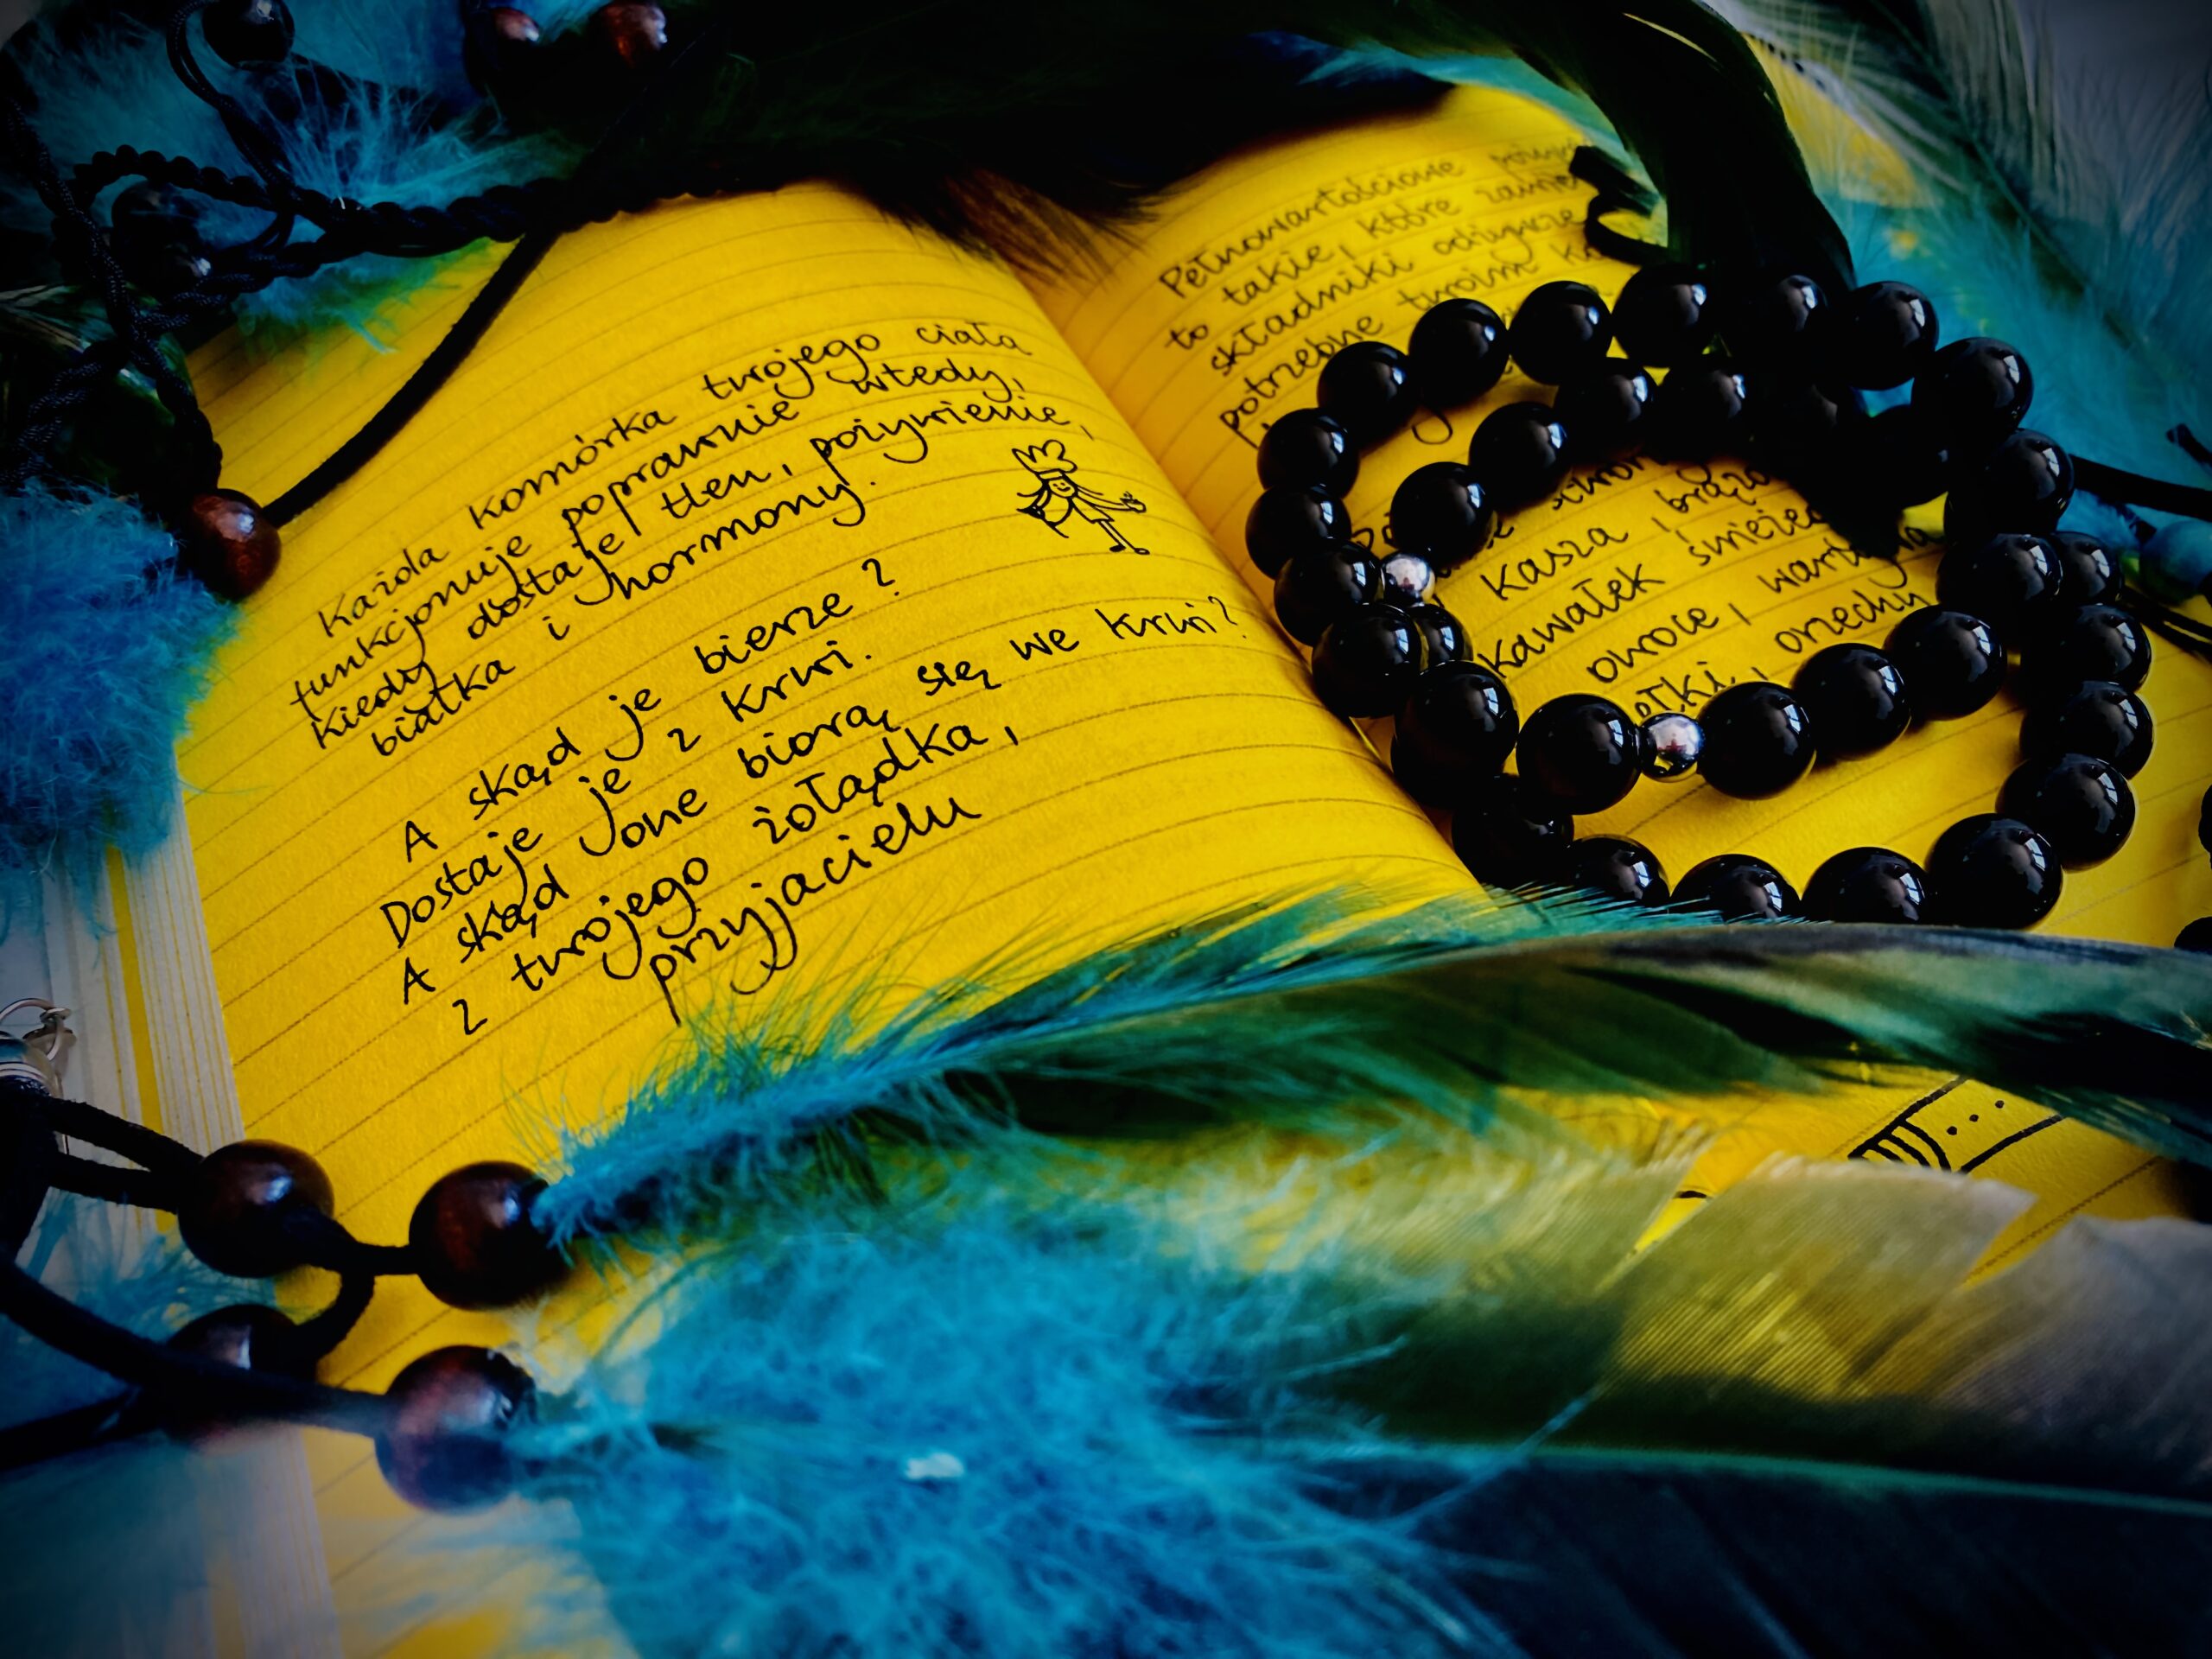 Każda komórka twojego ciała
funkcjonuje poprawnie wtedy,
kiedy dostaje tlen, pożywienie,
białka i hormony.
A skąd je bierze?
Dostaje je z krwi.
A skąd one biorą się we krwi?
z twojego żołądka,
przyjacielu
Pełnowartościowe
to takie, które
składniki odżywcze
potrzebne twoim
kasza, brązo
kawałek świeżeg
owoce, warzywa
orzechy